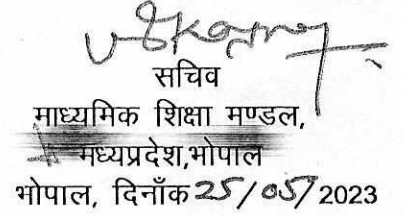 सचिव
माध्यमिक शिक्षा मण्डल,
मध्यप्रदेश,भोपाल
भोपाल, दिनाँक 25/05/2023